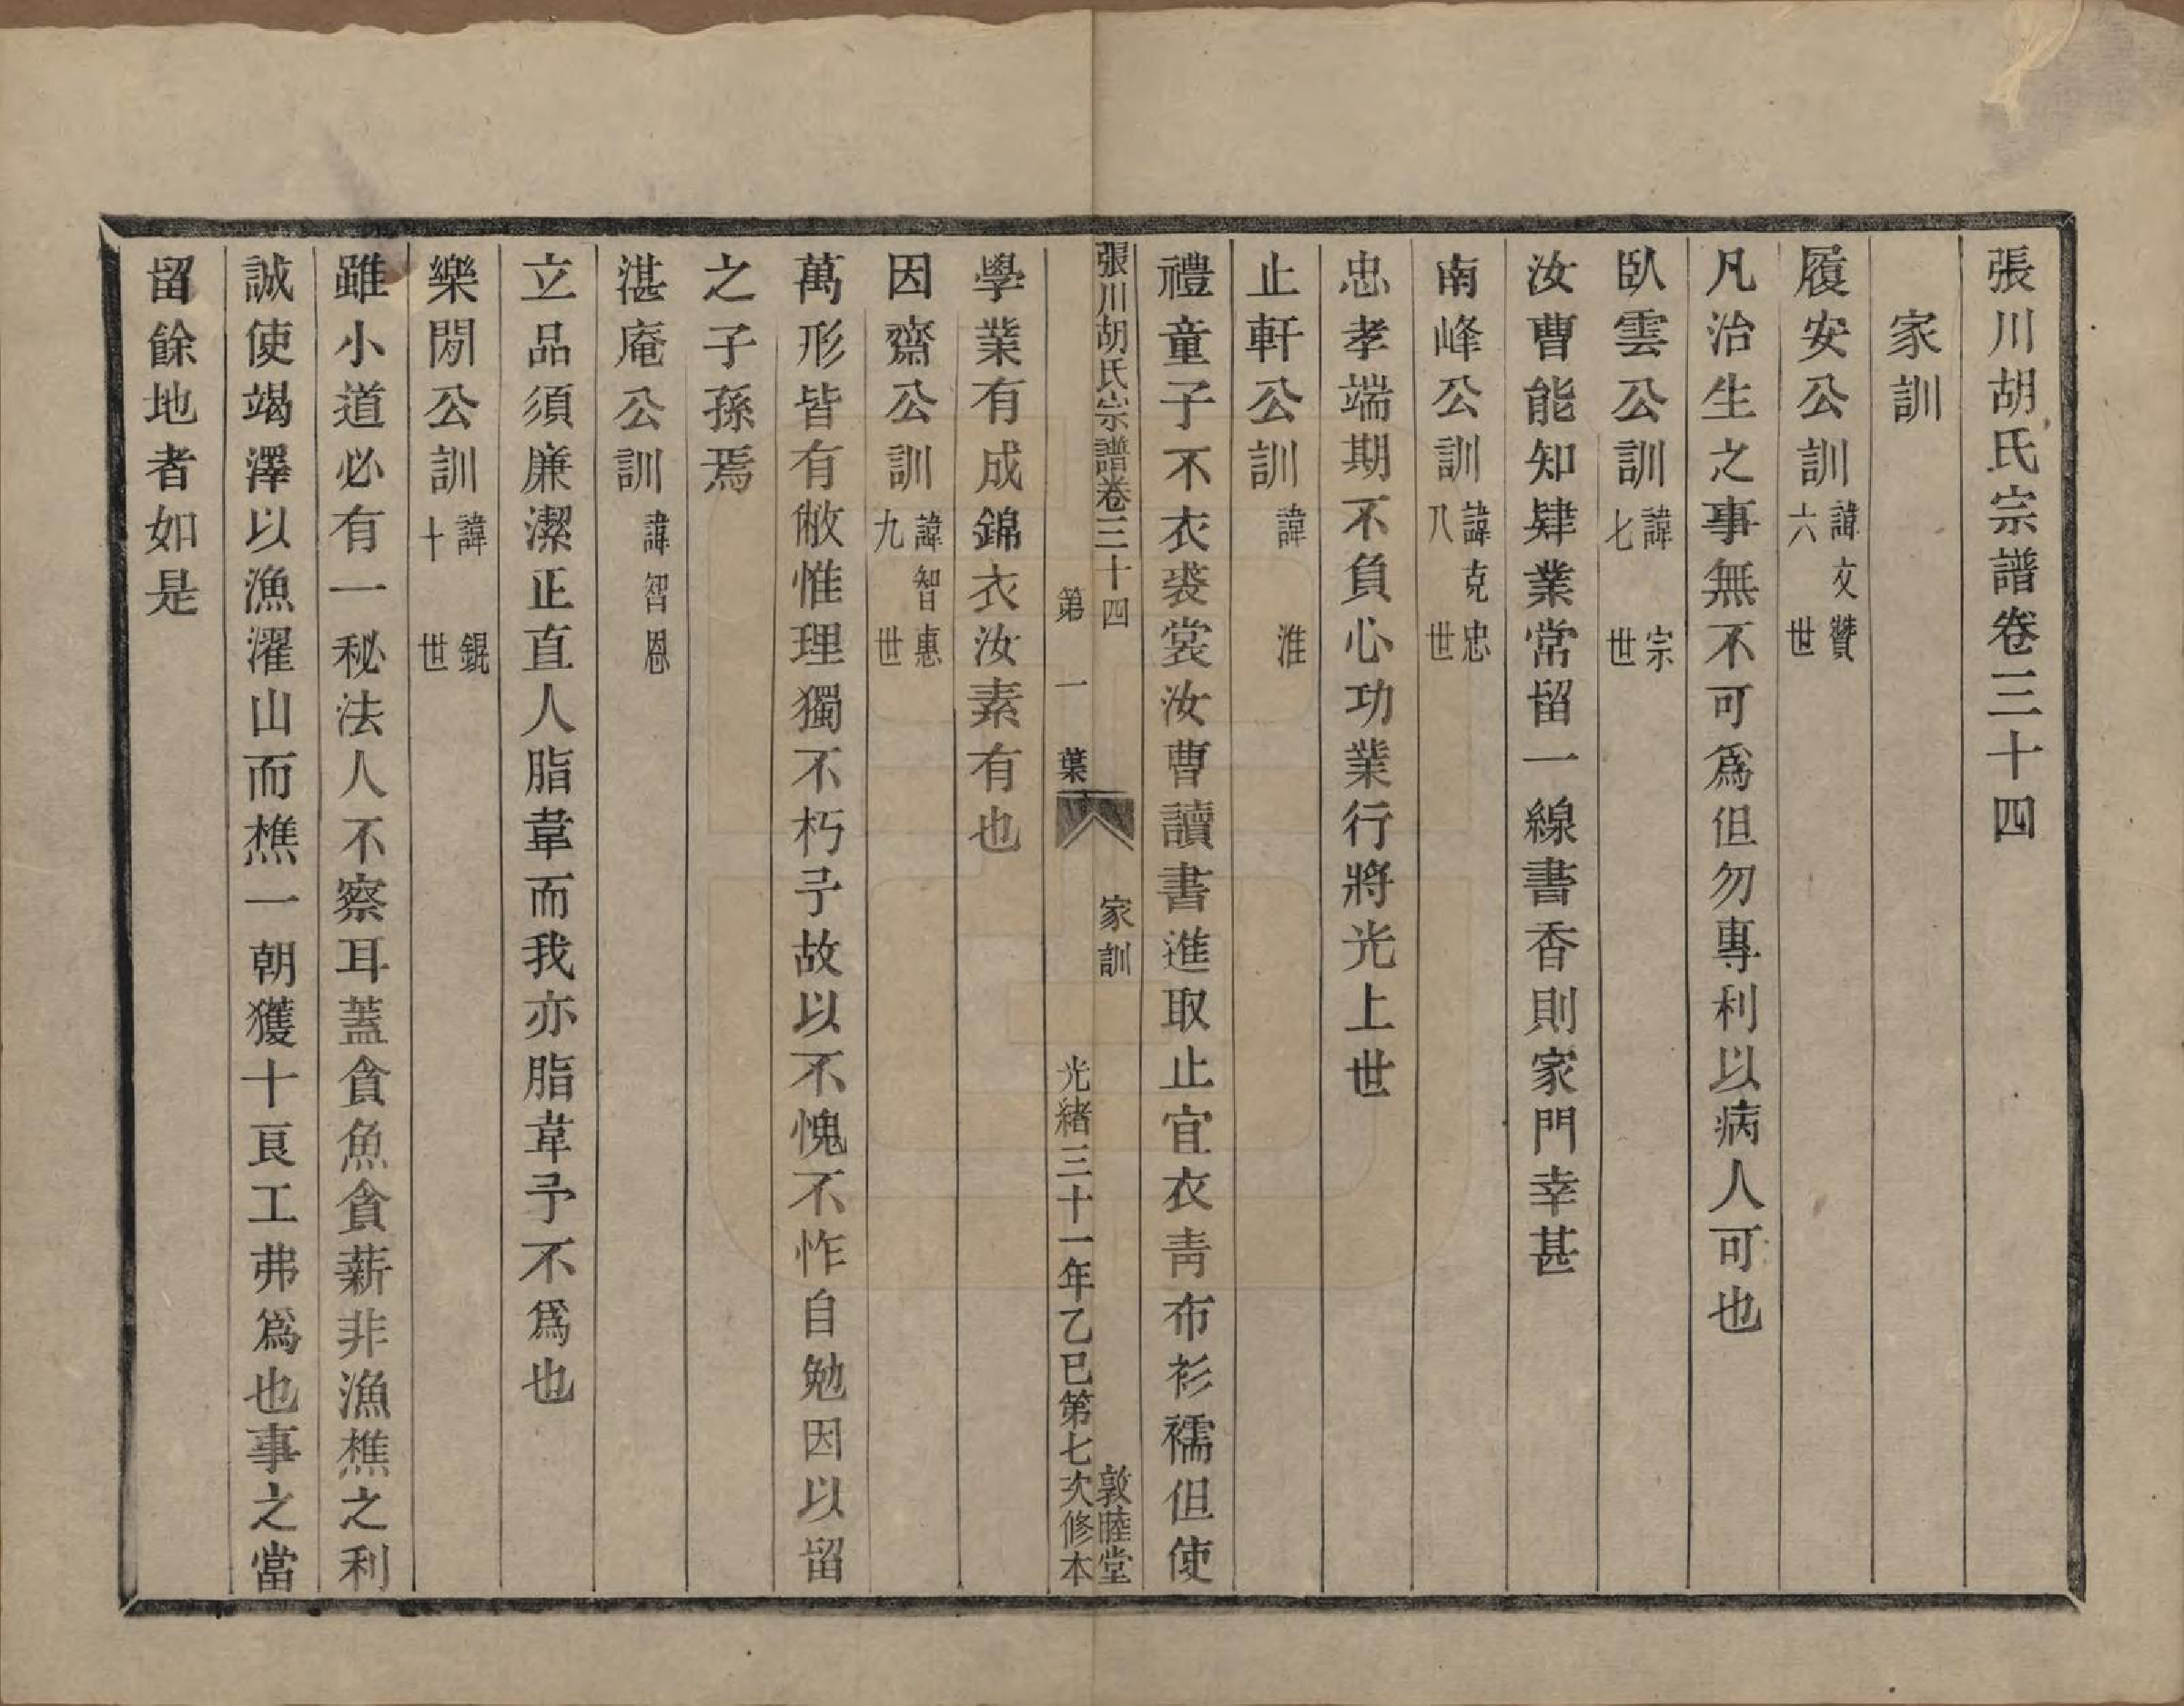 張川胡氏宗譜卷三十四
家訓
履安公訓 諱文贊 六世
凡治生之事無不可爲但勿專利以病人可也
臥雲公訓 諱宗 七世
汝曹能知肄業常留一線書香則家門幸甚
南峰公訓 諱克忠 八世
忠孝端期不負心功業行將光上世
止軒公訓 諱淮
禮童子不衣裘裳汝曹讀書進取止宜衣靑布衫襦但使
張川胡氏宗譜卷三十四 家訓 敦睦堂
第一葉 光緒三十一年乙巳第七次修本
學業有成錦衣汝素有也
因齋公訓 諱智惠 九世
萬形皆有敝惟理獨不朽予故以不愧不怍自勉因以留
之子孫焉
湛庵公訓 諱智恩
立品須廉潔正直人脂韋而我亦脂韋予不爲也
樂閒公訓 諱錕 十世
雖小道必有一秘法人不察耳蓋貪魚貪薪非漁樵之利
誠使竭澤以漁濯山而樵一朝獲十良工弗爲也事之當
留餘地者如是